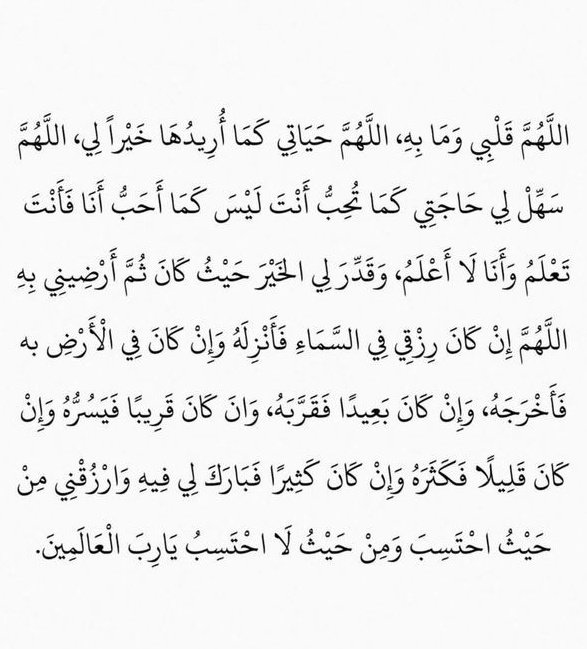 اللَّهُمَّ قَلْبِي وَمَا بِهِ، اللَّهُمَّ حَيَاتِي كَمَا أُرِيدُهَا خَيْراً لِي، اللَّهُمَّ
سَهِّلْ لِي حَاجَتِي كَمَا تُحِبُّ أَنْتَ لَيْسَ كَمَا أَحَبُّ أَنَا فَأَنْتَ
تَعْلَمُ وَأَنَا لَا أَعْلَمُ، وَقَدِّرَ لِي الخَيْرَ حَيْثُ كَانَ ثُمَّ أَرْضِينِي بِهِ
اللَّهُمَّ إِنْ كَانَ رِزْقِي فِي السَّمَاءِ فَأَنْزِلَهُ وَإِنْ كَانَ فِي الْأَرْضِ به
فَأَخْرَجَهُ، وَإِنْ كَانَ بَعِيدًا فَقَرَّبَهُ، وَانَ كَانَ قَرِيبًا فَيَسُرُّهُ وَإِنْ
كَانَ قَلِيلًا فَكَثَرَهُ وَإِنْ كَانَ كَثِيرًا فَبَارَكَ لِي فِيهِ وَارْزُقْنِي مِنْ
حَيْثُ احْتَسِبَ وَمِنْ حَيْثُ لَا احْتَسِبُ يَارِبَ الْعَالَمِينَ.